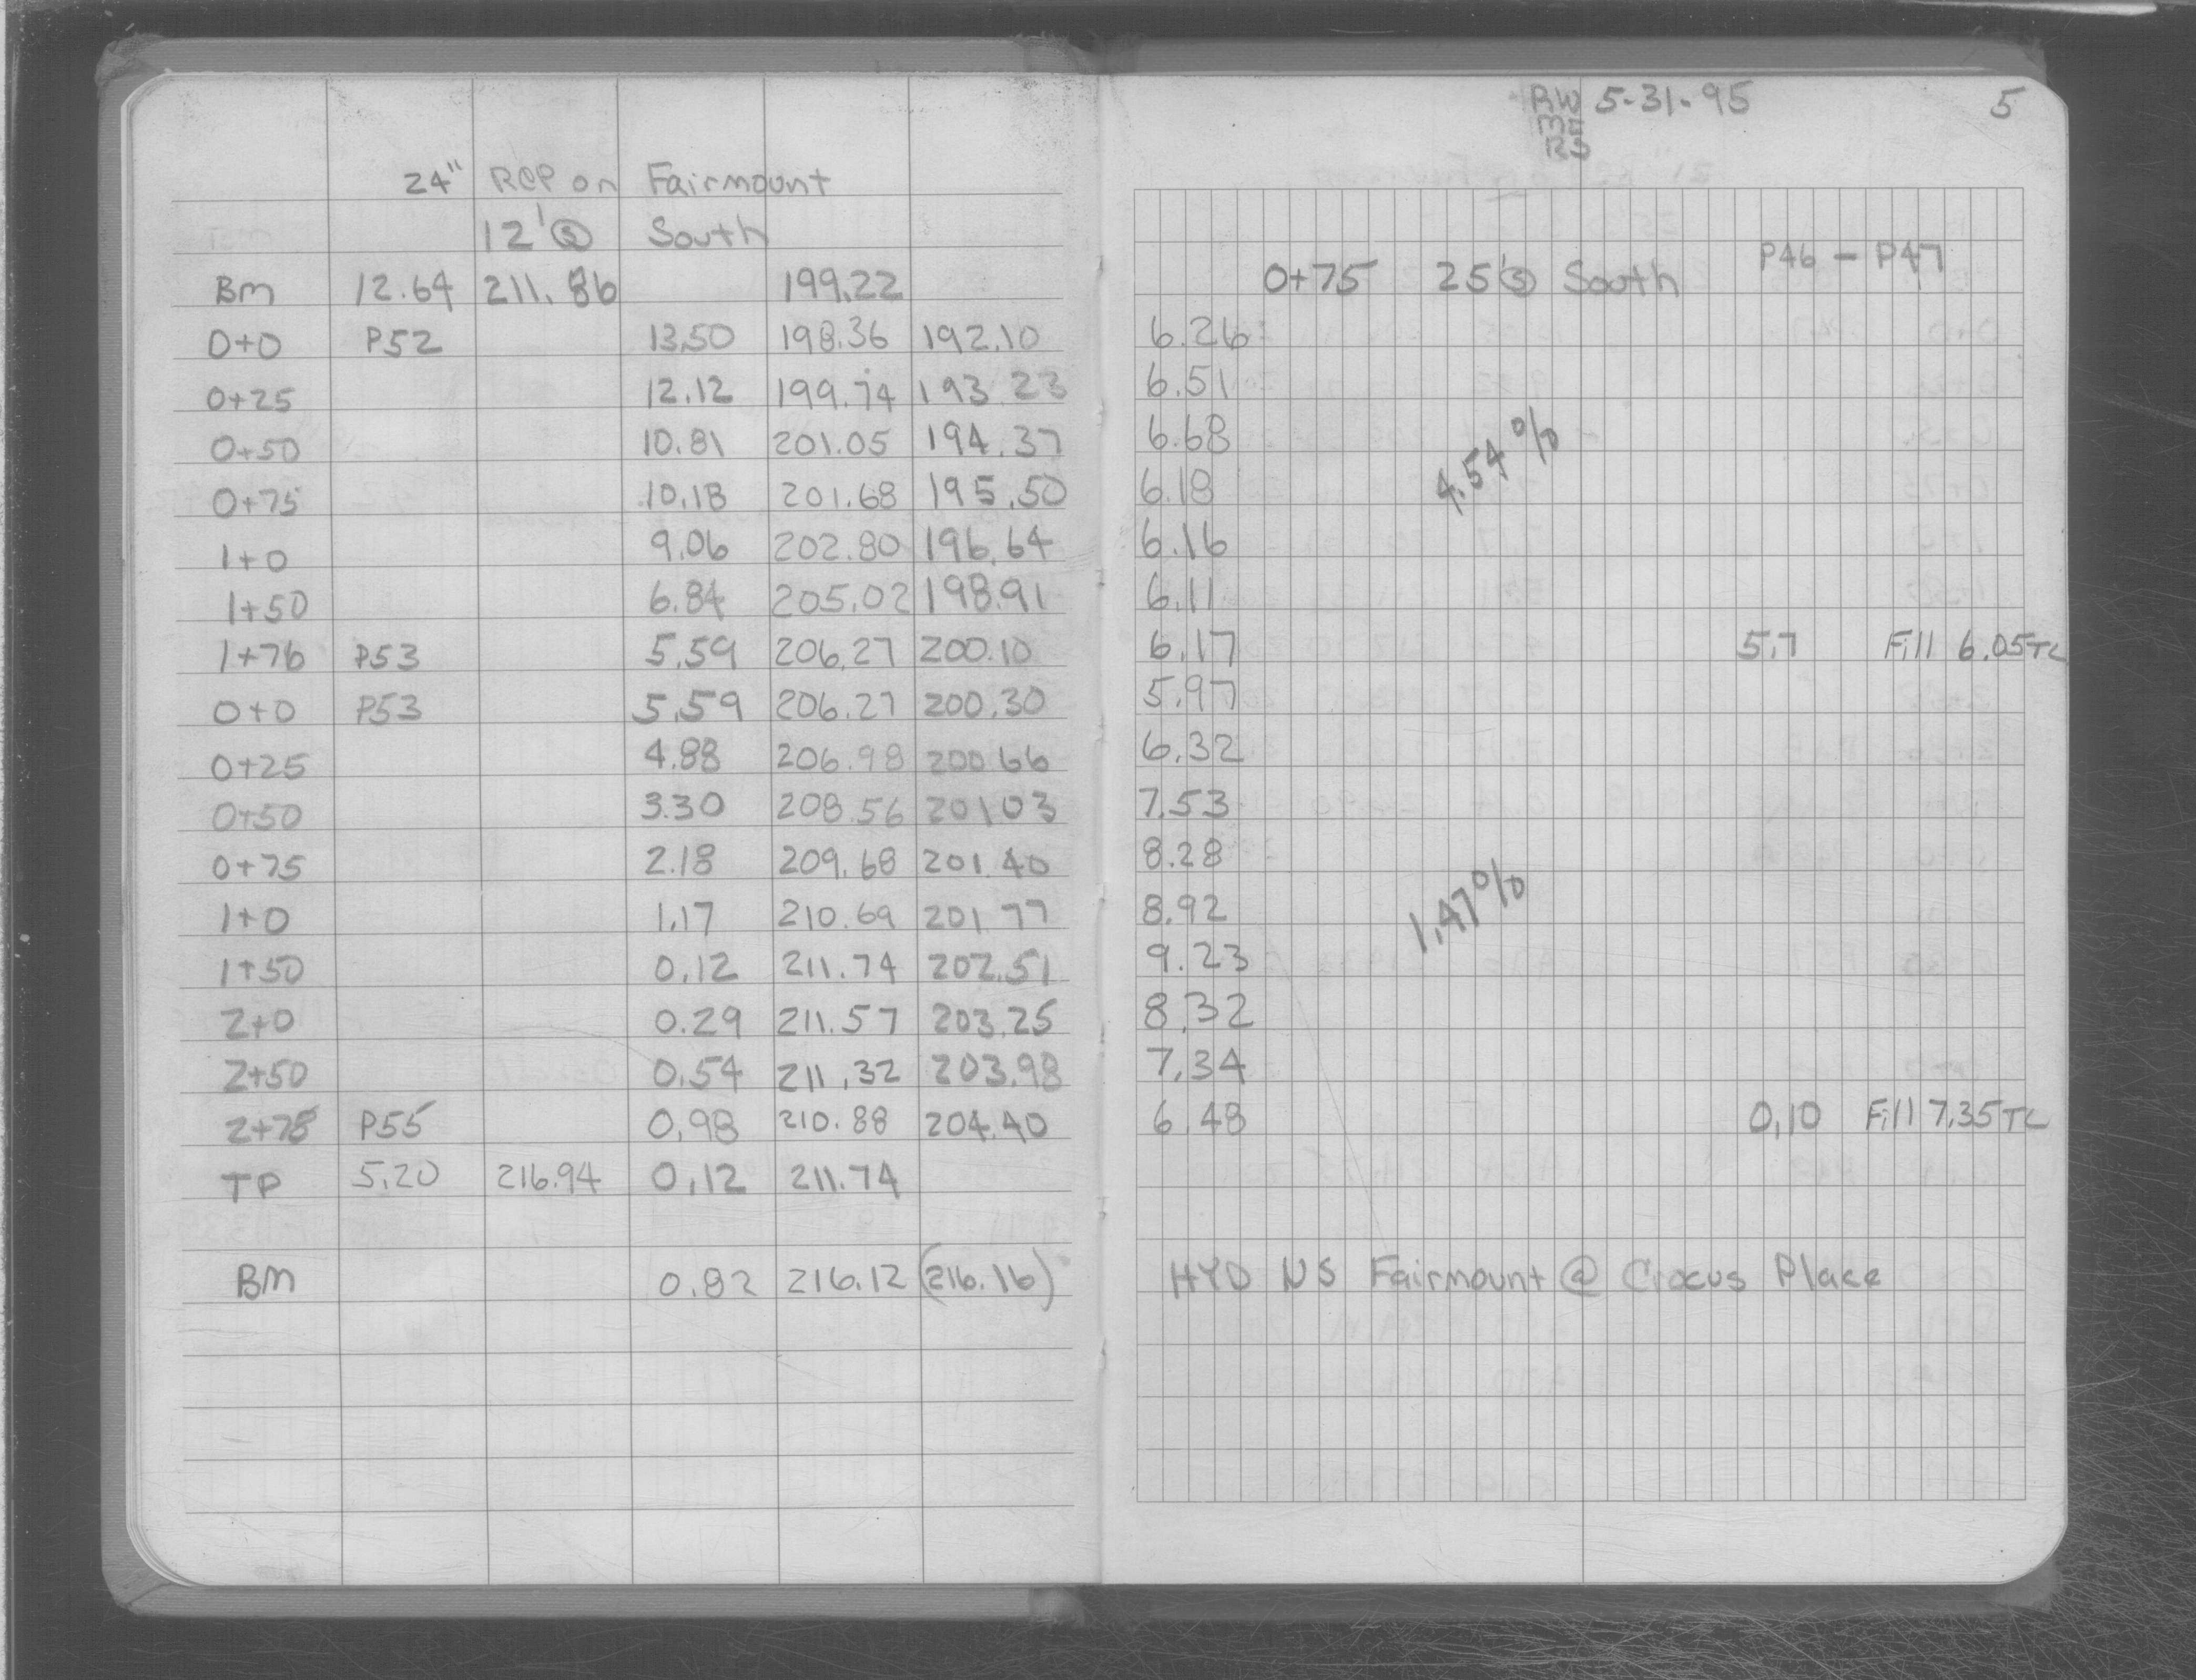 24" RCP on Fairmount
12' Ⓢ South
BM 12.64 211.86 199.22
0+0 P52 13.50 198.36 192.10
0+25 12.12 199.74 193.23
0+50 10.81 201.05 194.37
0+75 10.18 201.68 195.50
1+0 9.06 202.80 196.64
1+50 6.84 205.02 198.91
1+76 P53 5.59 206.27 200.10
0+0 P53 5.59 206.27 200.30
0+25 4.88 206.98 200.66
0+50 3.30 208.56 201 03
0+75 2.18 209.68 201.40
1+0 1.17 210.69 201.77
1+50 0.12 211.74 202.51
2+0 0.29 211.57 203.25
2+50 0.54 211.32 203.98
2+78 P55 0.98 210.88 204.40
TP 5.20 216.94 0.12 211.74
BM 0.82 216.12 (216.16)
RW 5-31-95 5
ME
RS
P46 - P47
0+75 25' Ⓢ South
6.26
6.51
6.68
4.54%
6.18
6.16
6.11
6.17 5.7 Fill 6.05 TC
5.97
6.32
7.53
8.28
8.92
1.47%
9.23
8.32
7.34
6.48 0.10 Fill 7.35 TC
HYD NS Fairmount @ Crocus Place